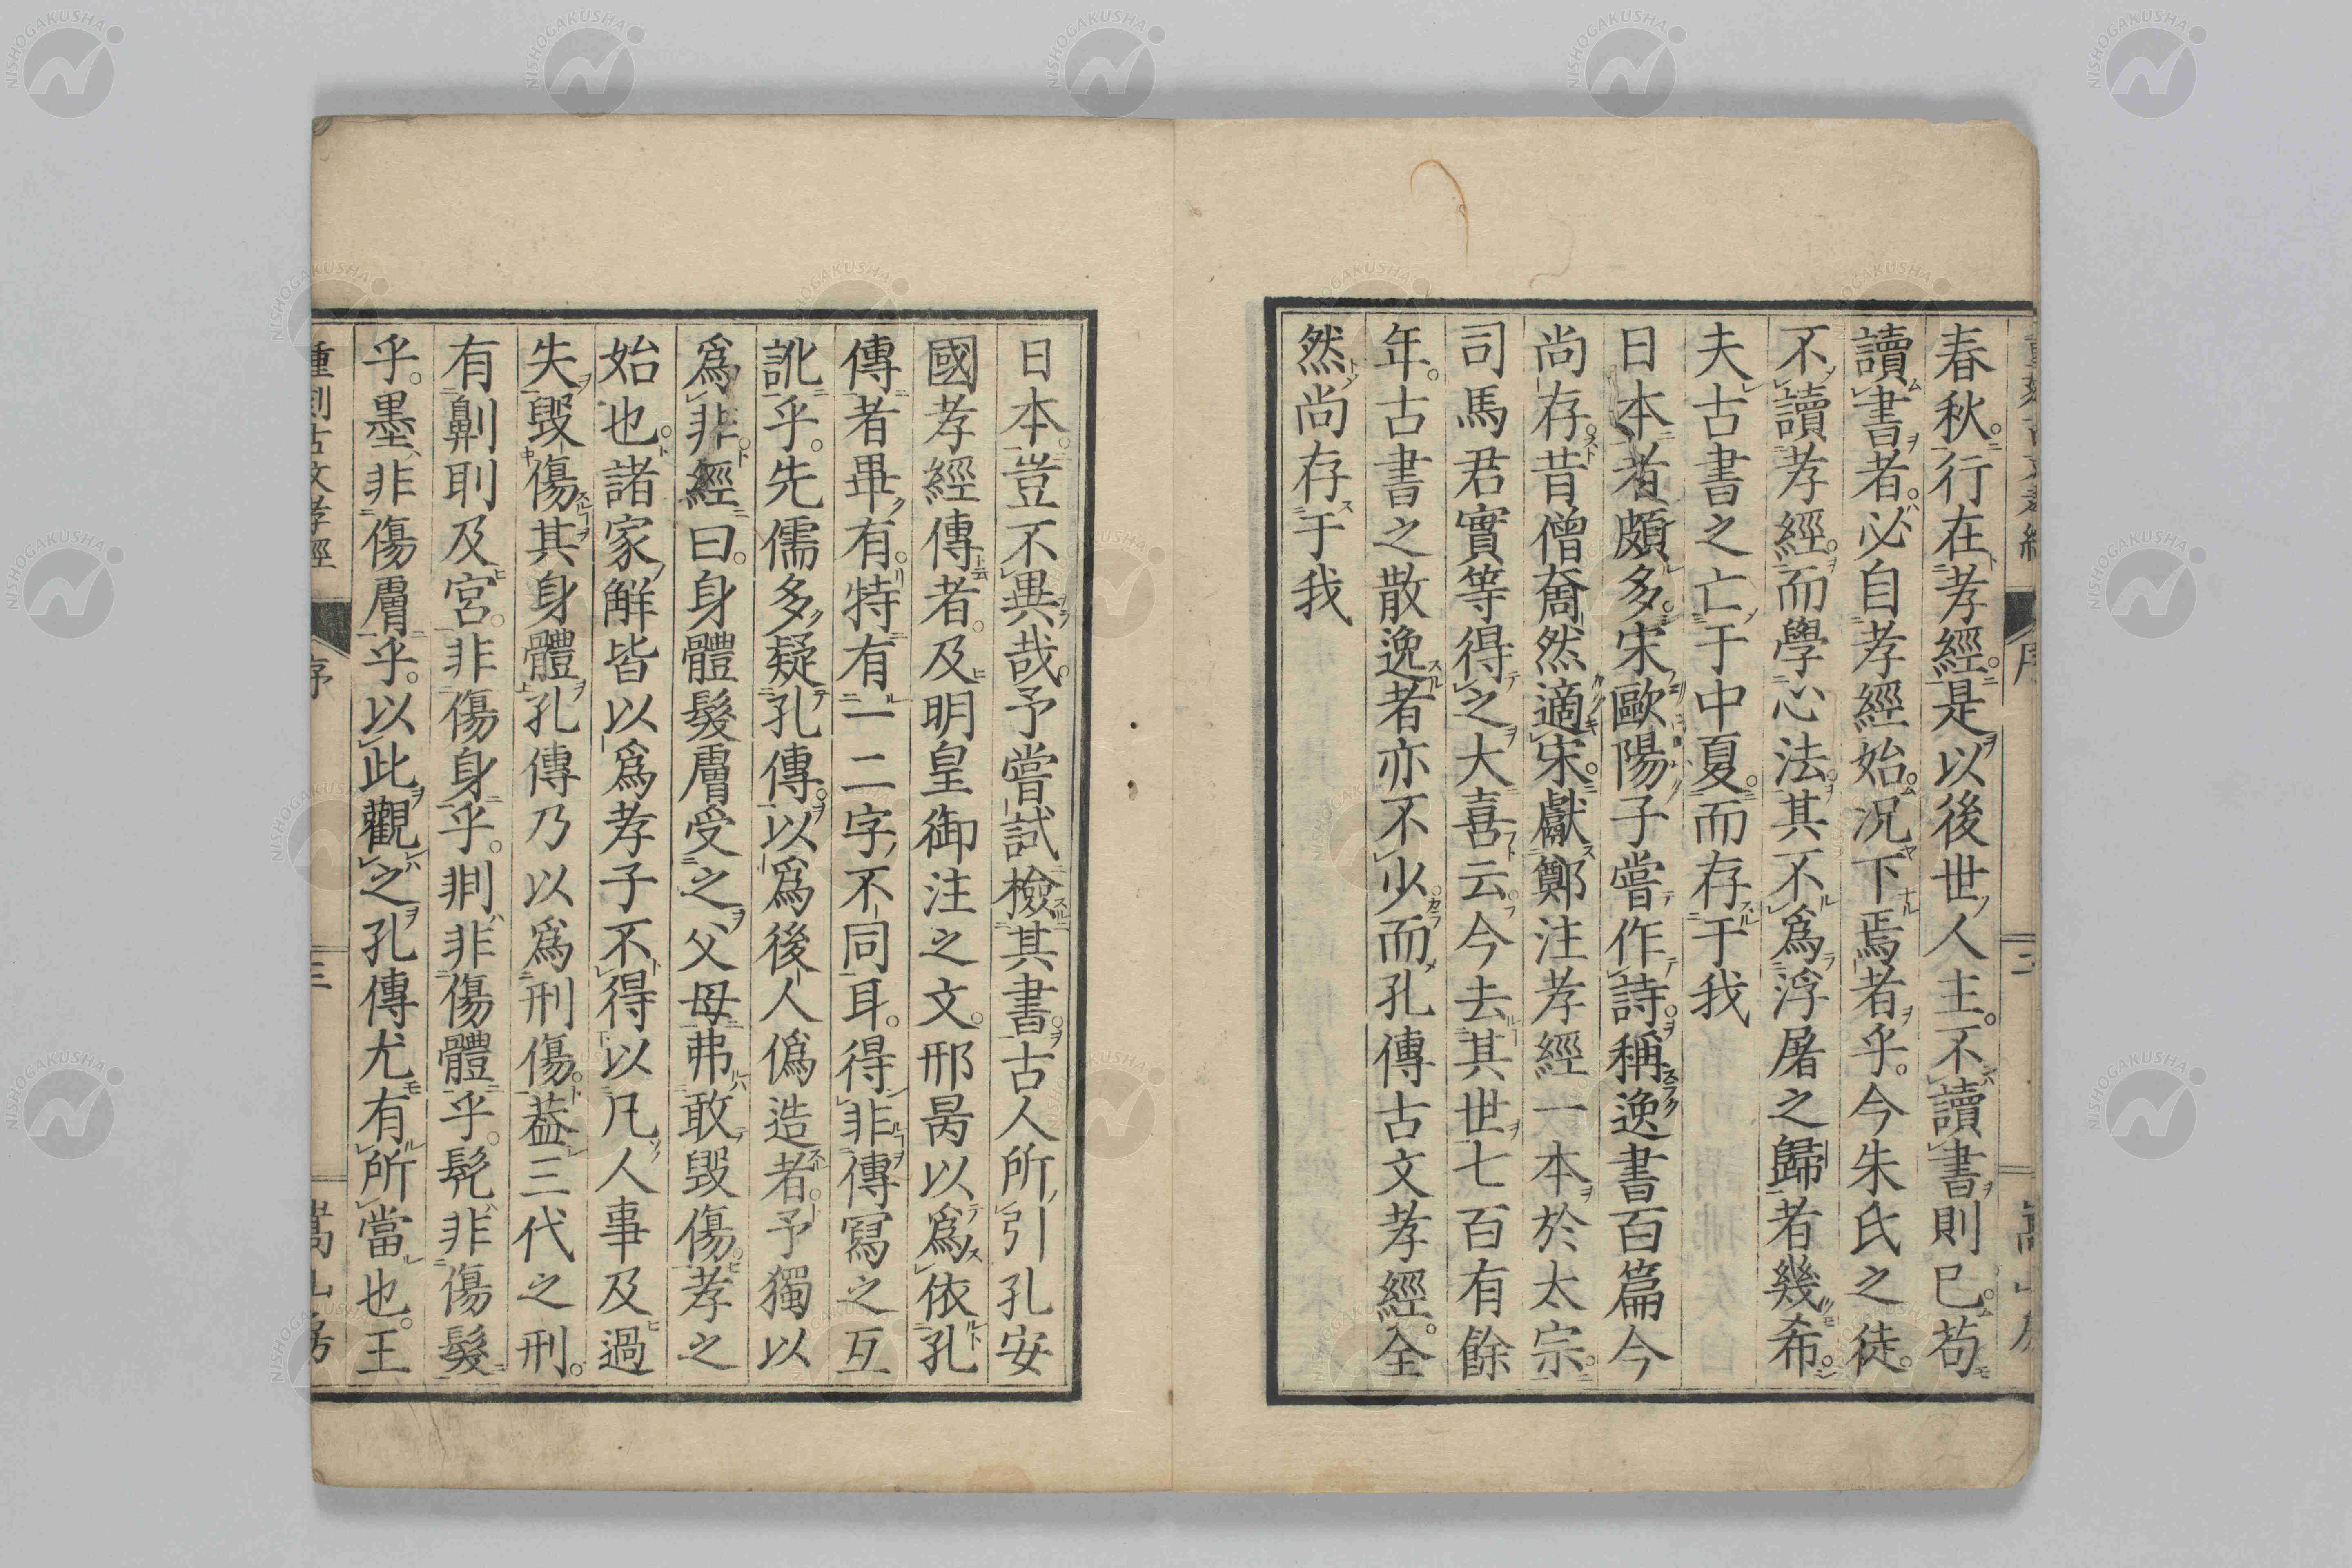 春秋行在孝經是以後世人主不讀書則已苟
讀書者必自孝經始況下焉者乎今朱氏之徒
不讀孝經而學心法其不爲浮屠之歸者幾希
夫古書之亡于中夏而存于我
日本者頗多宋歐陽子嘗作詩稱逸書百篇今
尚存昔僧奝然適宋獻鄭注孝經一本於太宗
司馬君實等得之大喜云今去其世七百有餘
年古書之散逸者亦不少而孔傳古文孝經全
然尚存于我
日本豈不異哉予嘗試檢其書古人所引孔安
國孝經傳者及明皇御注之文邢昺以爲依孔
傳者畢有特有一二字不同耳得非傳寫之互
訛乎先儒多疑孔傳以爲後人僞造者予獨以
爲非經曰身體髮膚受之父母弗敢毀傷孝之
始也諸家解皆以爲孝子不得以凡人事及過
失毀傷其身體孔傳乃以爲刑傷葢三代之刑
有劓刵及宮非傷身乎剕非傷體乎髡非傷髮
乎墨非傷膚乎以此觀之孔傳尤有所當也王
重刻古文孝經 序 三 嵩山房
NISHOGAKUSHA